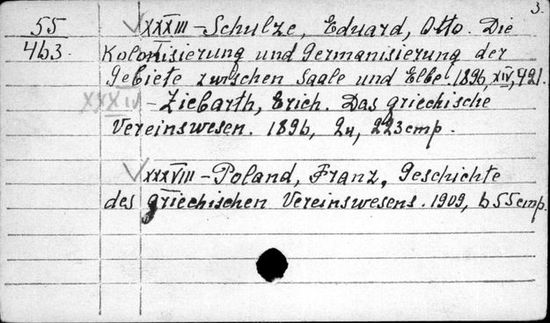 3.
55 XXXIII - Schulze, Eduard, Otto. Die
463. Kolonisierung und Germanisierung der
Gebiete zwischen Saale und Elbe. 1896, XIV, 421.
XXXIV - Ziebarth, Erich. Das griechische
Vereinswesen. 1896, 2н, 223стр.
XXXVIII - Poland, Franz, Geschichte
des griechischen Vereinswesens. 1909, 655стр.